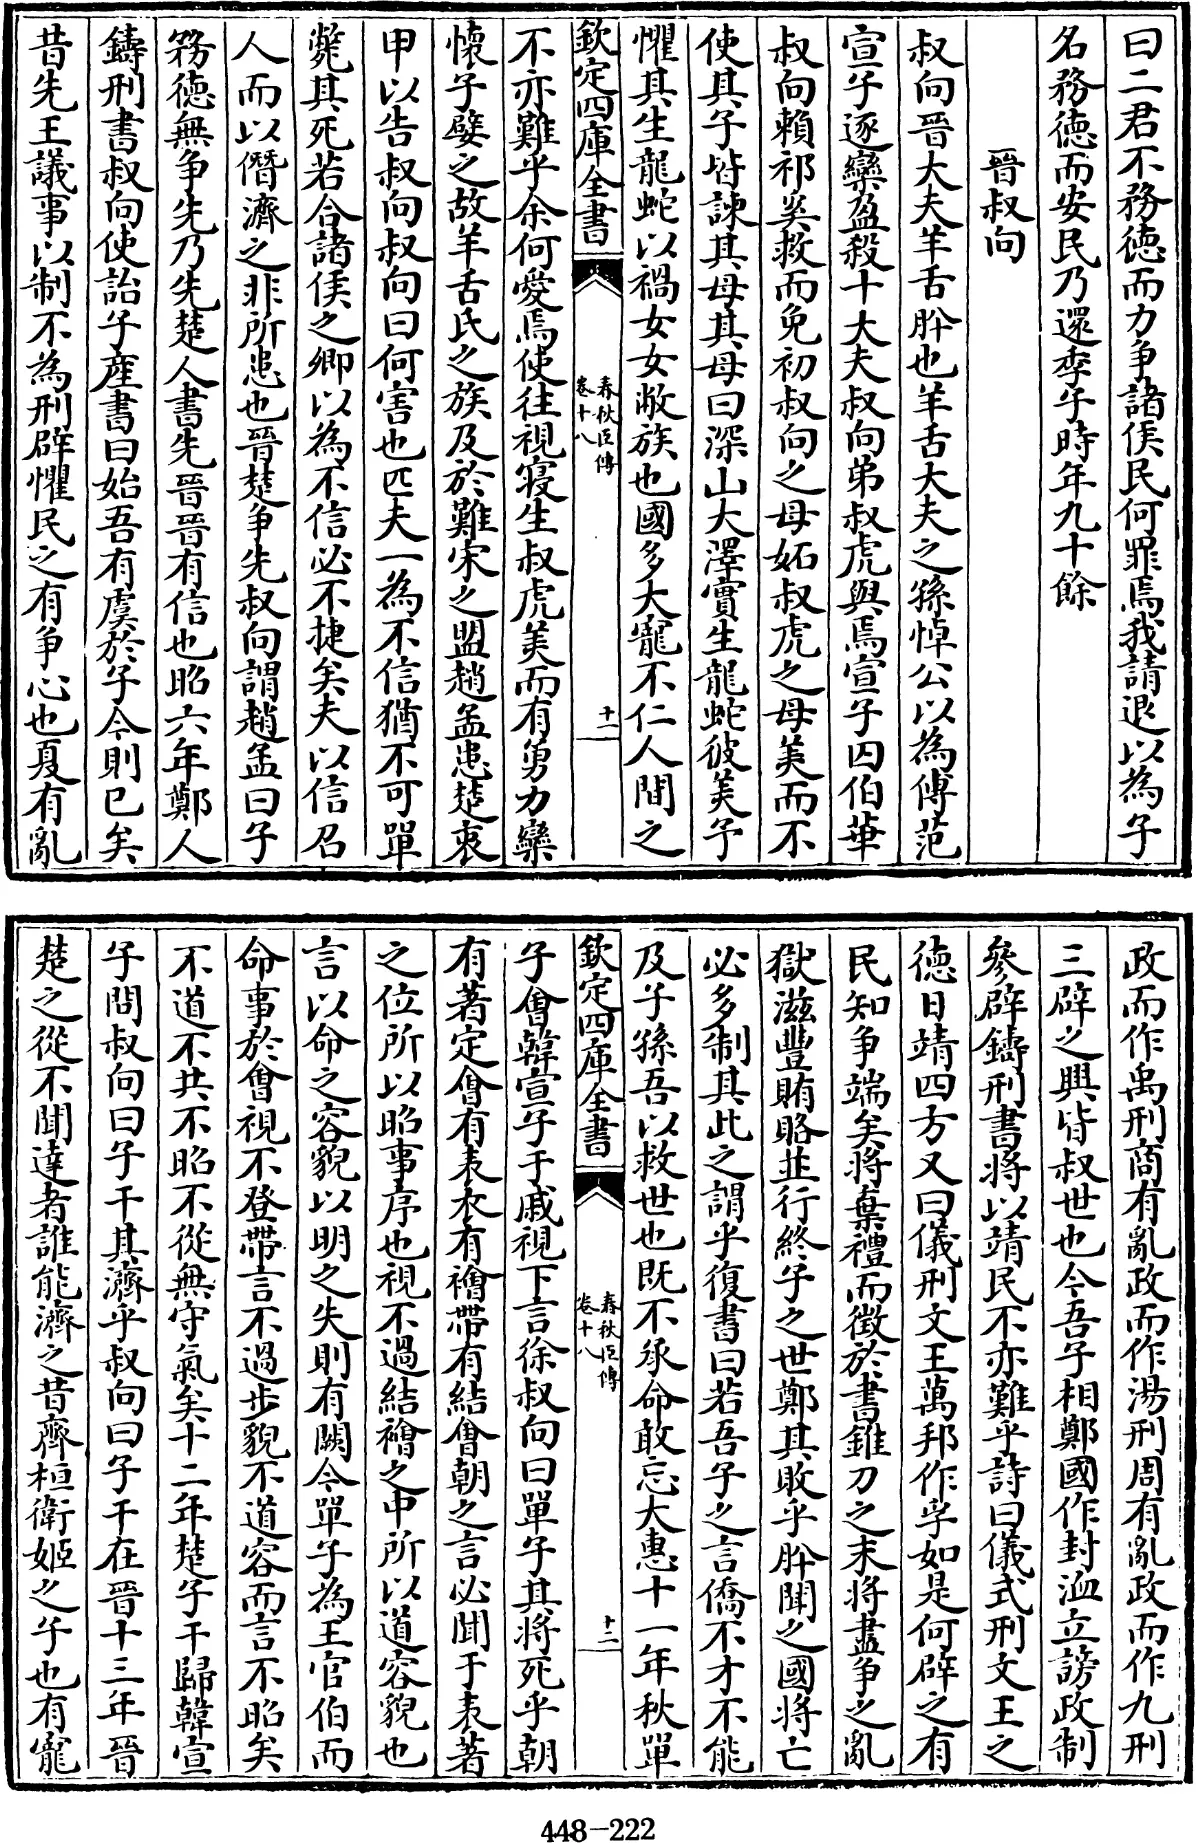 曰二君不務徳而力争諸侯民何罪焉我請退以為子
名務徳而安民乃還李子時年九十餘
晉叔向
叔向晉大夫羊舌肸也羊舌大夫之孫悼公以為傅范
宣子逐欒盈殺十大夫叔向弟叔虎與焉宣子囚伯華
叔向賴祁奚救而免初叔向之母妬叔虎之母美而不
使其子皆諫其母其母曰深山大澤實生龍蛇彼美予
懼其生龍蛇以禍女女敝族也國多大寵不仁人間之
欽定四庫全書
春秋臣傳
卷十八
十一
不亦難乎余何愛焉使往視寢生叔虎美而有勇力欒
懷子嬖之故羊舌氏之族及於難宋之盟趙孟患楚衷
甲以告叔向叔向曰何害也匹夫一為不信猶不可單
斃其死若合諸侯之卿以為不信必不捷矣夫以信召
人而以僭濟之非所患也晉楚争先叔向謂趙孟曰子
務徳無争先乃先楚人書先晉晉有信也昭六年鄭人
鑄刑書叔向使詒子産書曰始吾有虞於子今則已矣
昔先王議事以制不為刑辟懼民之有争心也夏有亂
政而作禹刑商有亂政而作湯刑周有亂政而作九刑
三辟之興皆叔世也今吾子相鄭國作封洫立謗政制
參辟鑄刑書將以靖民不亦難乎詩曰儀式刑文王之
徳日靖四方又曰儀刑文王萬邦作孚如是何辟之有
民知争端矣將棄禮而徴於書錐刀之末將盡争之亂
獄滋豐賄賂並行終子之世鄭其敗乎肸聞之國將亡
必多制其此之謂乎復書曰若吾子之言僑不才不能
及子孫吾以救世也既不承命敢忘大惠十一年秋單
欽定四庫全書
春秋臣傳
卷十八
十二
子㑹韓宣子于戚視下言徐叔向曰單子其將死乎朝
有著定㑹有表衣有襘帶有結㑹朝之言必聞于表著
之位所以昭事序也視不過結襘之中所以道容貌也
言以命之容貌以明之失則有闕今單子為王官伯而
命事於㑹視不登帶言不過步貌不道容而言不昭矣
不道不共不昭不從無守氣矣十二年楚子干歸韓宣
子問叔向曰子干其濟乎叔向曰子干在晉十三年晉
楚之從不聞達者誰能濟之昔齊桓衛姬之子也有寵
448-222